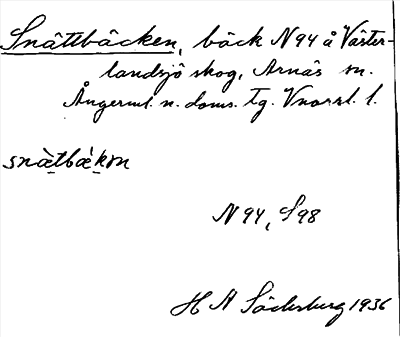 Snättbäcken, bäck N94 å Väster-
landsjö skog, Arnäs sn.
Ångerml. n. doms. tg. Vnorrl. l.
snä̀tbä́kɷn
N 94, S 98
H A Söderberg 1936